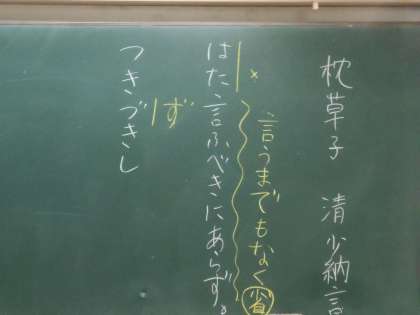 枕草子 清少納言
言うまでもなく 省
はた言ふべきにあらず。
ず
つきづきし